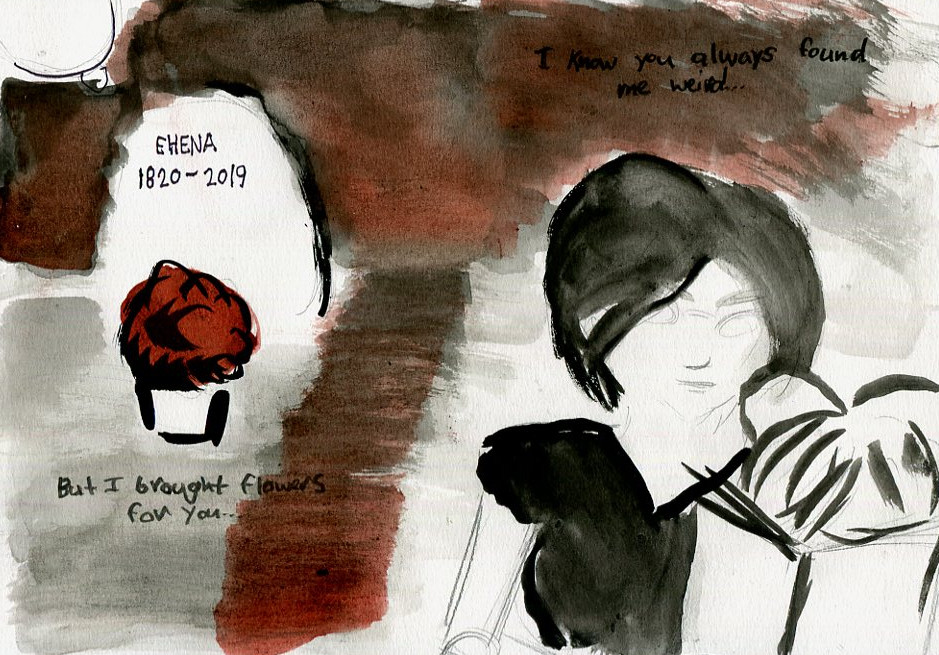 I know you always found
me weird...
EHENA
1820~2019
But I brought flowers
for you...